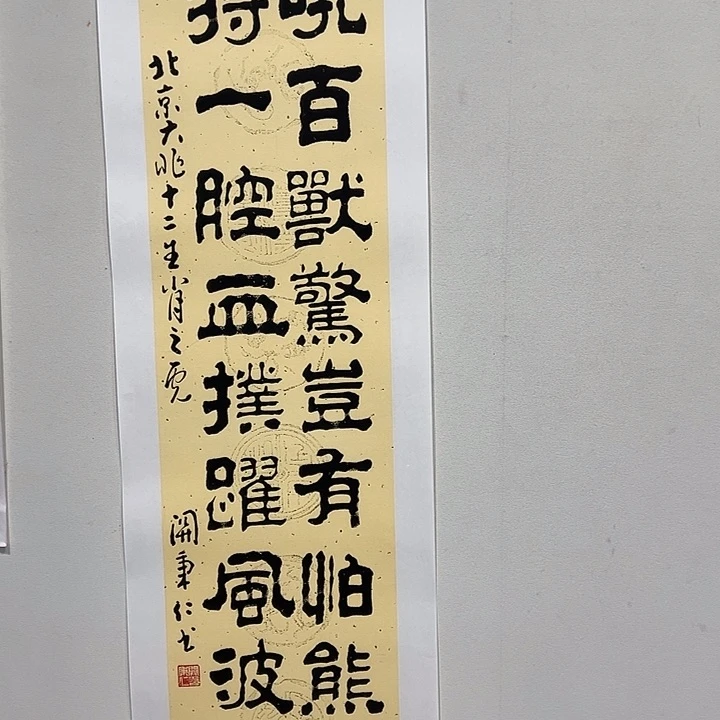 吼百獸驚豈有怕熊
持一腔血撲躍風波
北京大兆十二生肖之虎
關秉仁书